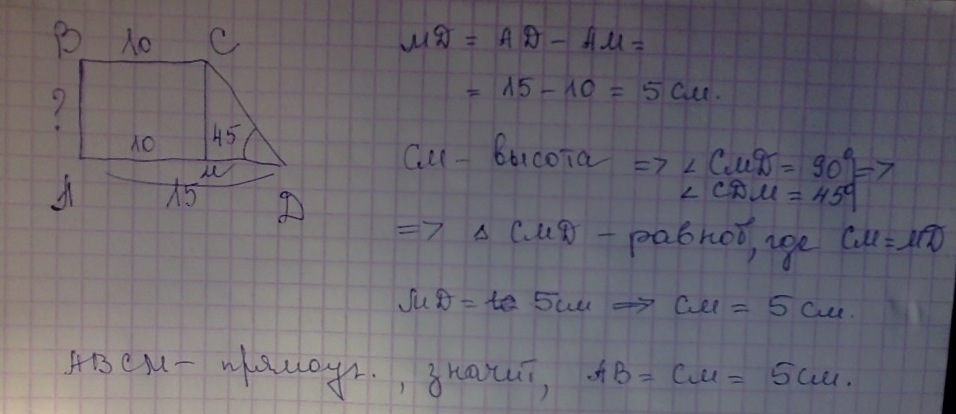 B 10 C
?
10 45
M
A 15 D
MD = AD - AM =
= 15 - 10 = 5 см.
CM - высота => ∠ CMD = 90° =>
∠ CDM = 45°
=> △ CMD - равноб, где CM = MD
MD = 5 см => CM = 5 см.
ABCM - прямоуг., значит, AB = CM = 5 см.